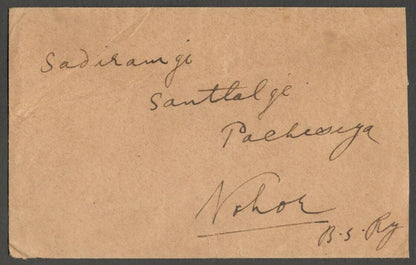 Sadiramji
Santlalji
Pacheesiya
Nohor
B. S. Ry